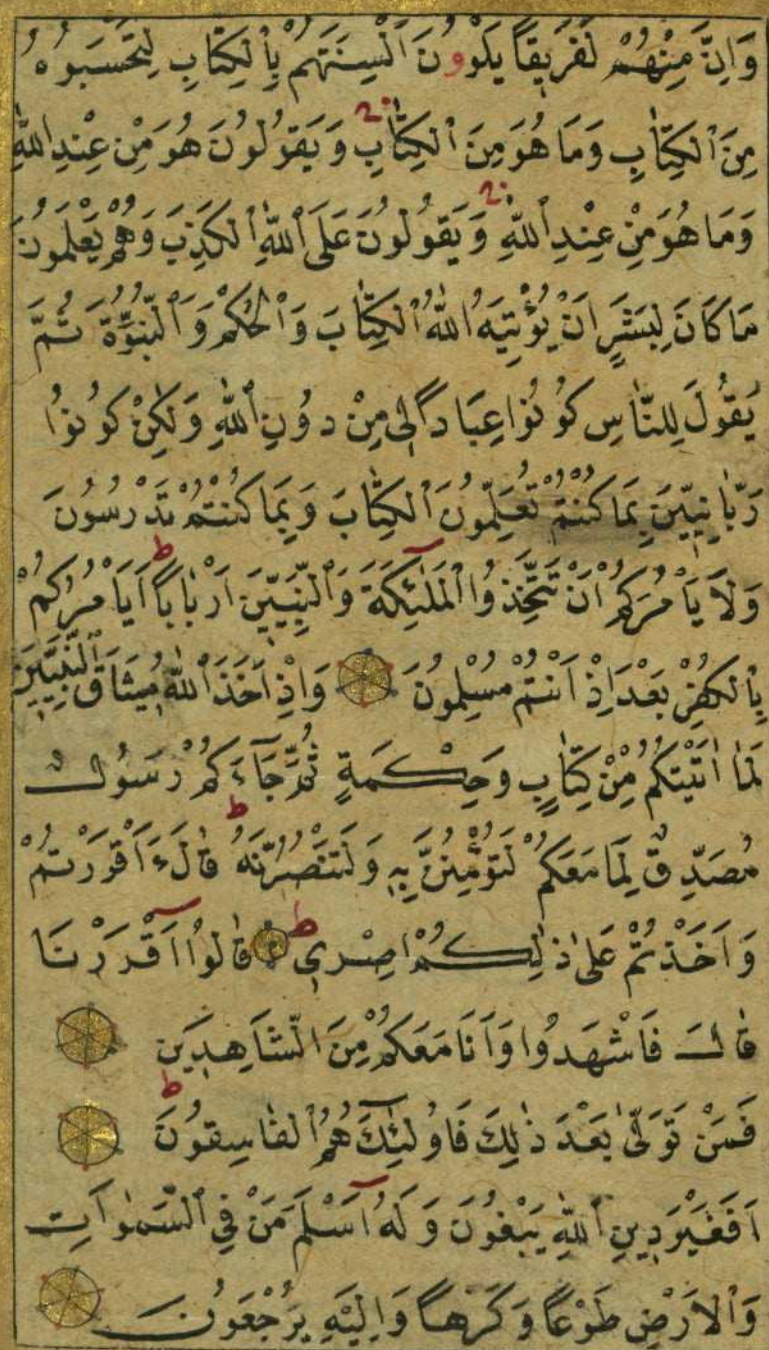 وَاِنَّ مِنْهُمْ لَفَرِيقًا يَلْوٗونَ اَلْسِنَتَهُمْ بِاْلكِتَابِ لِتَحْسَبُوهُ
مِنَ اْلكِتَابِ وَمَا هُوَ مِنَ اْلكِتَابِ وَيَقُولُونَ هُوَ مِنْ عِنْدِ اللّٰهِ
وَمَا هُوَ مِنْ عِنْدِ اللّٰهِ وَيَقُولُونَ عَلَى اللّٰهِ اْلكَذِبَ وَهُمْ يَعْلَمُونَ
مَا كَانَ لِبَشَرٍ اَنْ يُؤْتِيَهُ اللّٰهُ اْلكِتَابَ وَاْلحُكْمَ وَالنُّبُوَّةَ ثُمَّ
يَقُولَ لِلنَّاسِ كُونُوا عِبَادًا لِى مِنْ دُونِ اللّٰهِ وَلٰكِنْ كُونُوا
رَبَّانِيّٖنَ بِمَا كُنْتُمْ تُعَلِّمُونَ اْلكِتَابَ وَبِمَا كُنْتُمْ تَدْرُسُونَ
وَلَا يَاْمُرَكُمْ اَنْ تَتَّخِذُوا اْلمَلٰئِكَةَ وَالنَّبِيّٖنَ اَرْبَابًا ط اَيَاْمُرُكُمْ
بِاْلكُفْرِ بَعْدَ اِذْ اَنْتُمْ مُسْلِمُونَ وَاِذْ اَخَذَ اللّٰهُ مِيثَاقَ النَّبِيّٖنَ
لَمَا اٰتَيْتُكُمْ مِنْ كِتَابٍ وَحِكْمَةٍ ثُمَّ جَآءَكُمْ رَسُولٌ
مُصَدِّقٌ لِمَا مَعَكُمْ لَتُؤْمِنُنَّ بِهٖ وَلَتَنْصُرُنَّهُ ط قَالَ ءَاَقْرَرْتُمْ
وَاَخَذْتُمْ عَلٰى ذٰلِكُمْ اِصْرٖى ط قَالُوا اَقْرَرْنَا
قَالَ فَاشْهَدُوا وَاَنَا مَعَكُمْ مِنَ الشَّاهِدٖينَ
فَمَنْ تَوَلّٰى بَعْدَ ذٰلِكَ فَاُولٰئِكَ هُمُ اْلفَاسِقُونَ ط
اَفَغَيْرَ دٖينِ اللّٰهِ يَبْغُونَ وَلَهُ اَسْلَمَ مَنْ فِى السَّمٰوَاتِ
وَاْلاَرْضِ طَوْعًا وَكَرْهًا وَاِلَيْهِ يُرْجَعُونَ